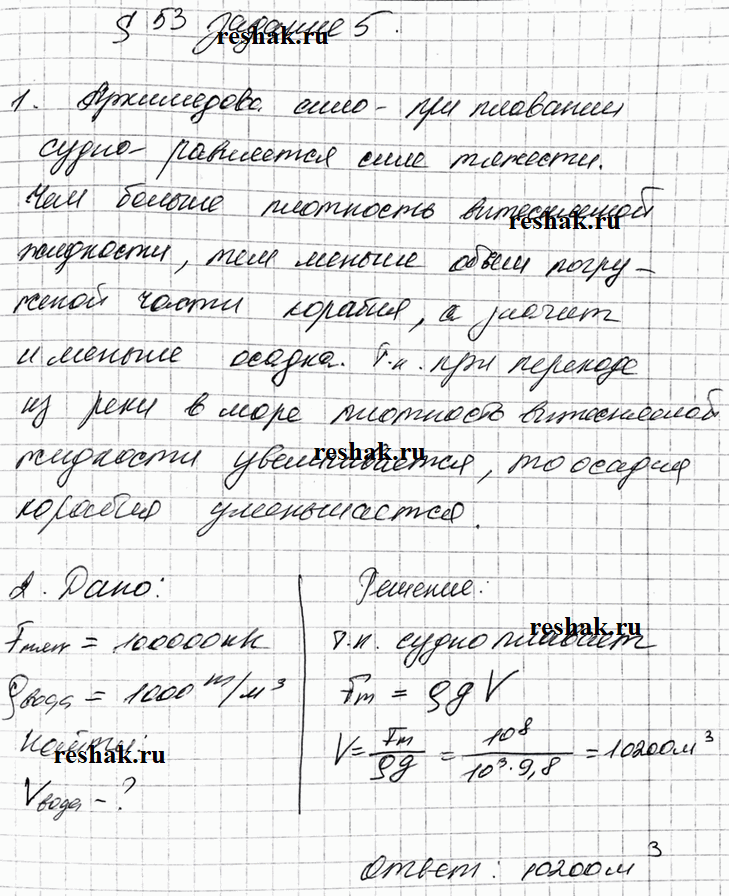 § 53 Задание 5.
reshak.ru
1. Архимедова сила - при плавании
судно - равняется силе тяжести.
Чем больше плотность вытесненной
reshak.ru
жидкости, тем меньше объем погру-
женой части корабля, а значит
и меньше осадка. Т.к. при переходе
из реки в море плотность вытесняемой
reshak.ru
жидкости увеличивается, то осадка
корабля уменьшается.
2. Дано:
Fтяж = 100000кН
ρвода = 1000 m/м³
Найти:
reshak.ru
Vвода - ?
Решение:
reshak.ru
т.к. судно плавает
Fт = ρgV
V = Fт/ρg = 10⁸/10³·9,8 = 10200м³
Ответ: 10200м³